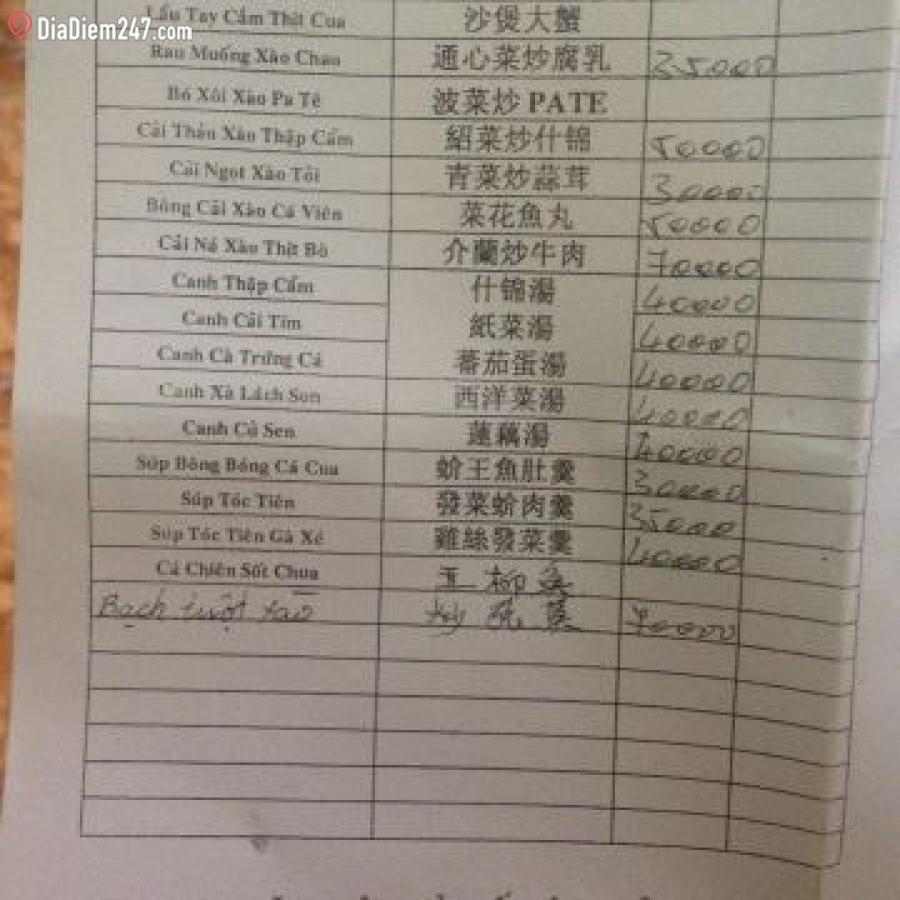 DiaDiem247.com
Lẩu Tay Cầm Thịt Cua 沙煲大蟹
Rau Muống Xào Chao 通心菜炒腐乳 35000
Bó Xôi Xào Pa Tê 波菜炒 PATE
Cải Thảo Xào Thập Cẩm 紹菜炒什锦 50000
Cải Ngọt Xào Tỏi 青菜炒蒜茸 30000
Bông Cải Xào Cá Viên 菜花魚丸 50000
Cải Ná Xào Thịt Bò 介蘭炒牛肉 70000
Canh Thập Cẩm 什锦湯 40000
Canh Cải Tím 紙菜湯 40000
Canh Cà Trứng Cá 蕃茄蛋湯 40000
Canh Xà Lách Son 西洋菜湯 40000
Canh Củ Sen 蓮藕湯 40000
Súp Bông Bóng Cá Cua 蚧王魚肚羹 30000
Súp Tóc Tiên 發菜蚧肉羹 35000
Súp Tóc Tiên Gà Xé 雞絲發菜羹 40000
Cá Chiên Sốt Chua 五柳魚
Bạch tuột xào 炒 70000